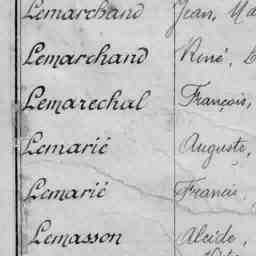 Lemarchand Jean, Ma
Lemarchand René,
Lemarechal François,
Lemarié Auguste,
Lemarié Francis
Lemasson Alcide,